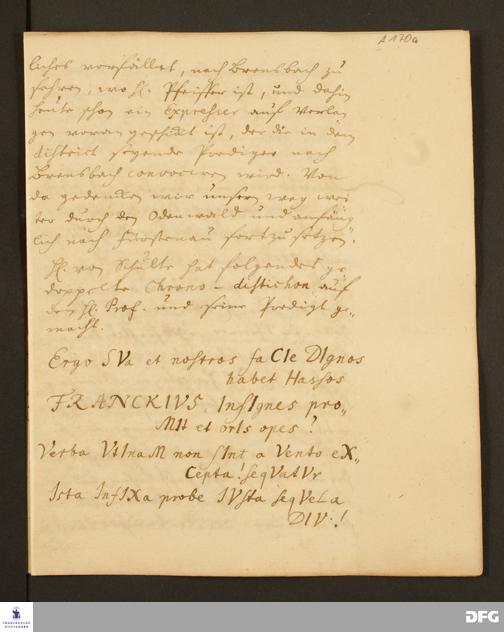 A 170a
liches vorfället, nach Brensbach zu
fahren, wo H. Pfeiffer ist, und dahin
heute schon ein Expresser auf Verlan
gen voran geschickt ist, der die in dem
district seyende Prediger nach
Brensbach convociren wird. Von
da gedencken wir unsern weg wei
ter durch den Odenwald und anfäng
lich nach Fürstenau fortzusetzen.
H. von Schulte hat folgendes ge
doppelte Chrono-distichon auf
den H. Prof. und seine Predigt ge-
macht.
Ergo SVa et nostros faCIe DIgnos
habet Hassos
FRANCKIVS, InsIgnes pro-
MIt et orIs opes?
Verba VtInaM non sInt a Vento eX-
Cepta! seqVatVr
Ista InfIXa probe IVsta seqVeLa
DIV.!
FRANCKESCHE
STIFTUNGEN
DFG